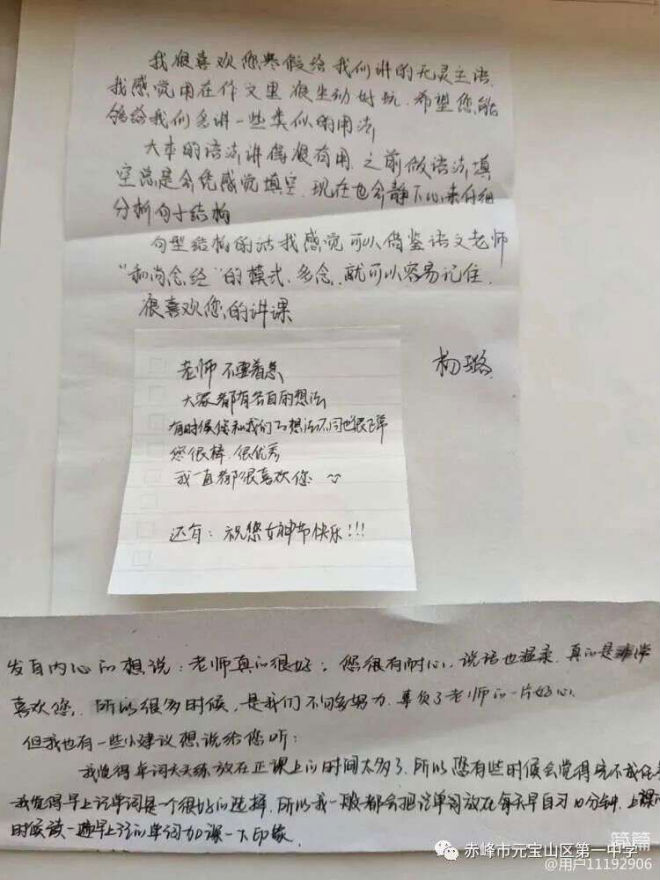 我很喜欢您寒假给我们讲的无灵主语
我感觉用在作文里很生动好玩.希望您能
够给我们多讲一些类似的用法
大本的语法讲得很有用.之前做语法填
空总是会凭感觉填空.现在也会静下心来仔细
分析句子结构
句型结构的话我感觉可以借鉴语文老师
“和尚念经”的模式、多念、就可以容易记住.
很喜欢您的讲课
杨璐
老师不要着急
大家都有各自的想法
有时候您和我们的想法不同也很正常
您很棒.很优秀
我一直都很喜欢您
还有:祝您女神节快乐!!!
发自内心的想说:老师真的很好.您很有耐心,说话也温柔.真的是非常
喜欢您.所以很多时候,是我们不够努力.辜负了老师的一片好心.
但我也有一些小建议想说给您听:
我觉得单词天天练放在正课上的时间太多了.所以您有些时候会觉得
我觉得早上读单词是一个很好的选择.所以我一般都会把读单词放在每天早自习10分钟.上课的
时候读一遍早上读的单词加课一下印象
篇篇
赤峰市元宝山区第一中学
@用户11192906